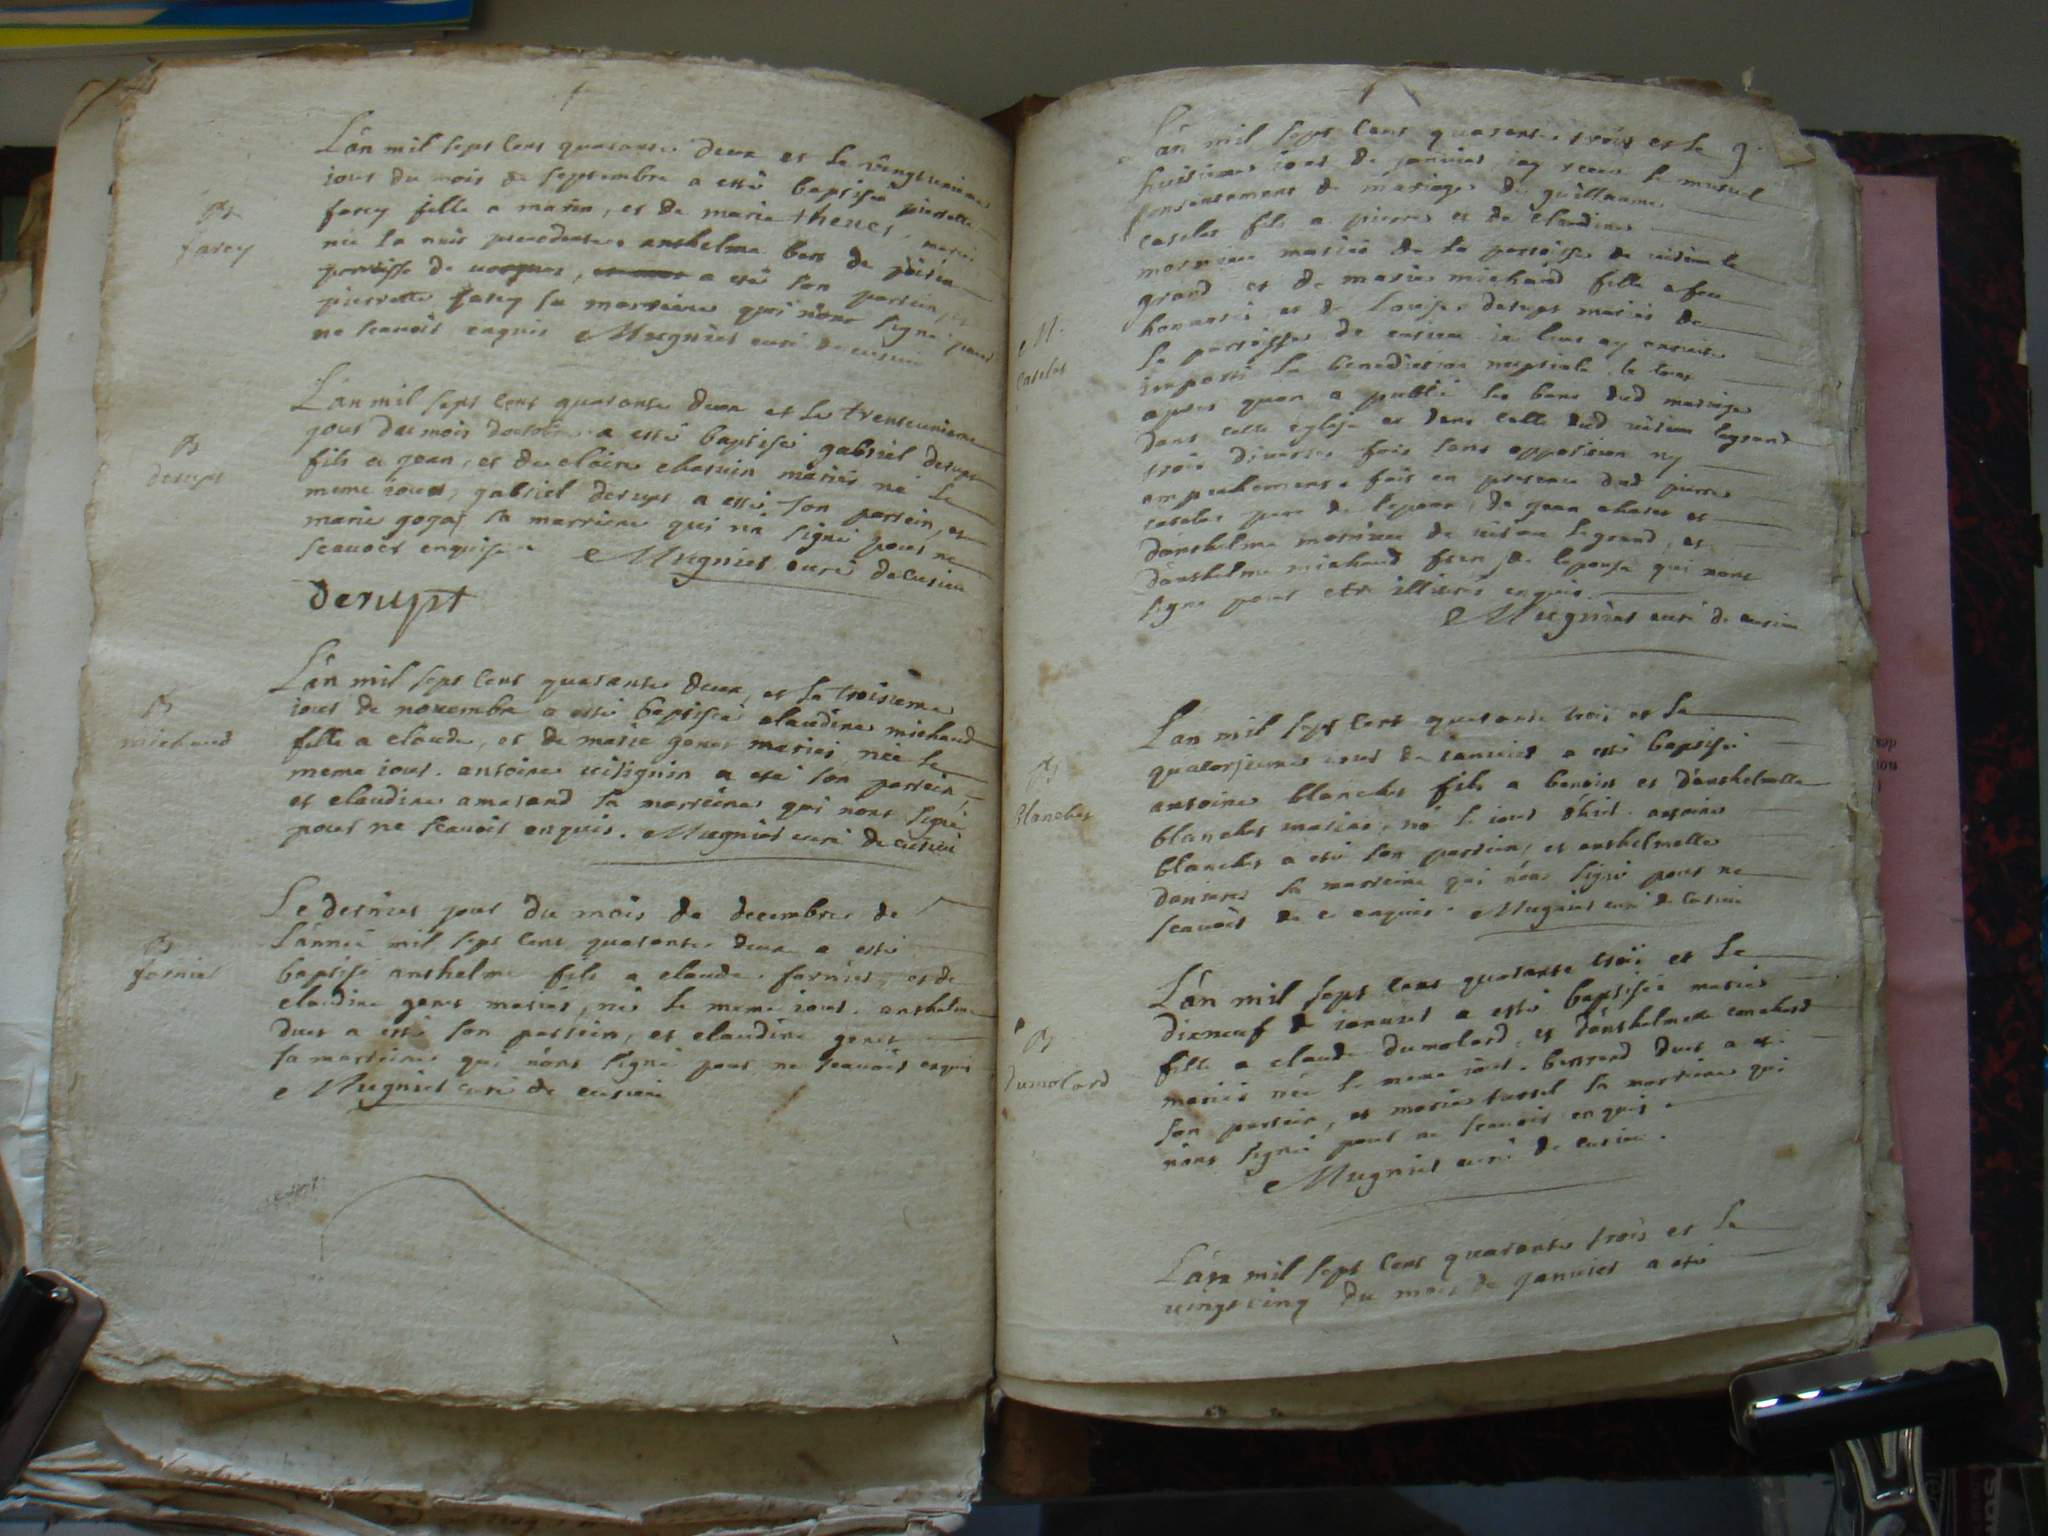 L'an mil sept cent quarante deux et le vingtunieme
jour du mois de septembre a esté baptisée pierrette
farey fille a marin, et de marie thenet, mariés
née la nuit precedente, anthelme de
parroisse de a esté son parrein, et
pierrette farey sa marreine qui n'ont signé pour
ne scavoir enquis Mugnier curé de cusieu
B
farey
L'an mil sept cent quarante deux et le trenteunieme
jour du mois doctobre a esté baptisé gabriel derupt
fils a jean, et de claire charvin mariés né le
meme jour, gabriel derupt a esté son parrein, et
marie gojat sa marreine qui n'a signé pour ne
scavoir enquise Mugnier curé de cusieu
derupt
B
derupt
L'an mil sept cent quarante deux, et le troisieme
jour de novembre a esté baptisée claudine michaud
fille a claude, et de marie genet mariés, née le
meme jour. antoine vilignin a esté son parrein,
et claudine amarand sa marreine qui n'ont signé
pour ne scavoir enquis. Mugnier curé de cusieu
B
michaud
Le dernier jour du mois de decembre de
l'année mil sept cent quarante deux a esté
baptisé anthelme fils a claude fornier, et de
claudine genet mariés, né le meme jour. anthelme
duet a esté son parrein, et claudine genet
sa marreine qui n'ont signé pour ne scavoir enquis
Mugnier curé de cusieu
B
fornier
L'an mil sept cent quarante trois et le
huitieme jour de janvier j'ay receu le mutuel
consentement de mariage de guillaume
caselet fils a pierre et de claudine
mornieu mariés de la parroisse de virieu le
grand et de marie michaud fille a feu
honnoré et de louise derupt mariés de
la parroisse de cusieu je leur ay ensuite
imparti la benediction nuptiale le tout
apres quon a publié les bans dud mariage
dans cette eglise et dans celle dud virieu legrand
trois diverses fois sans opposition ny
empechement. fait en presence dud pierre
caselet pere de lepoux, de jean chaset et
danthelme mornieu de virieu legrand, et
danthelme michaud frere de lepouse qui n'ont
signé pour etre illiterés enquis.
Mugnier curé de cusieu
M.
caselet
L'an mil sept cent quarante trois et le
quatorzieme jour de janvier a esté baptisé
antoine blanchet fils a benoist et d'anthelmette
blanchet mariés, né le jour d'hier. antoine
blanchet a esté son parrein, et anthelmette
sa marreine qui n'ont signé pour ne
scavoir de ce enquis. Mugnier curé de cusieu
B
blanchet
L'an mil sept cent quarante trois et le
dixneuf de janvier a esté baptisée marie
fille a claude dumolard, et d'anthelmette
mariés née le meme jour. bernard duet a été
son parrein, et marie sa marreine qui
n'ont signé pour ne scavoir enquis.
Mugnier curé de cusieu.
B
dumolard
L'an mil sept cent quarante trois et le
vingtcinq du mois de janvier a esté